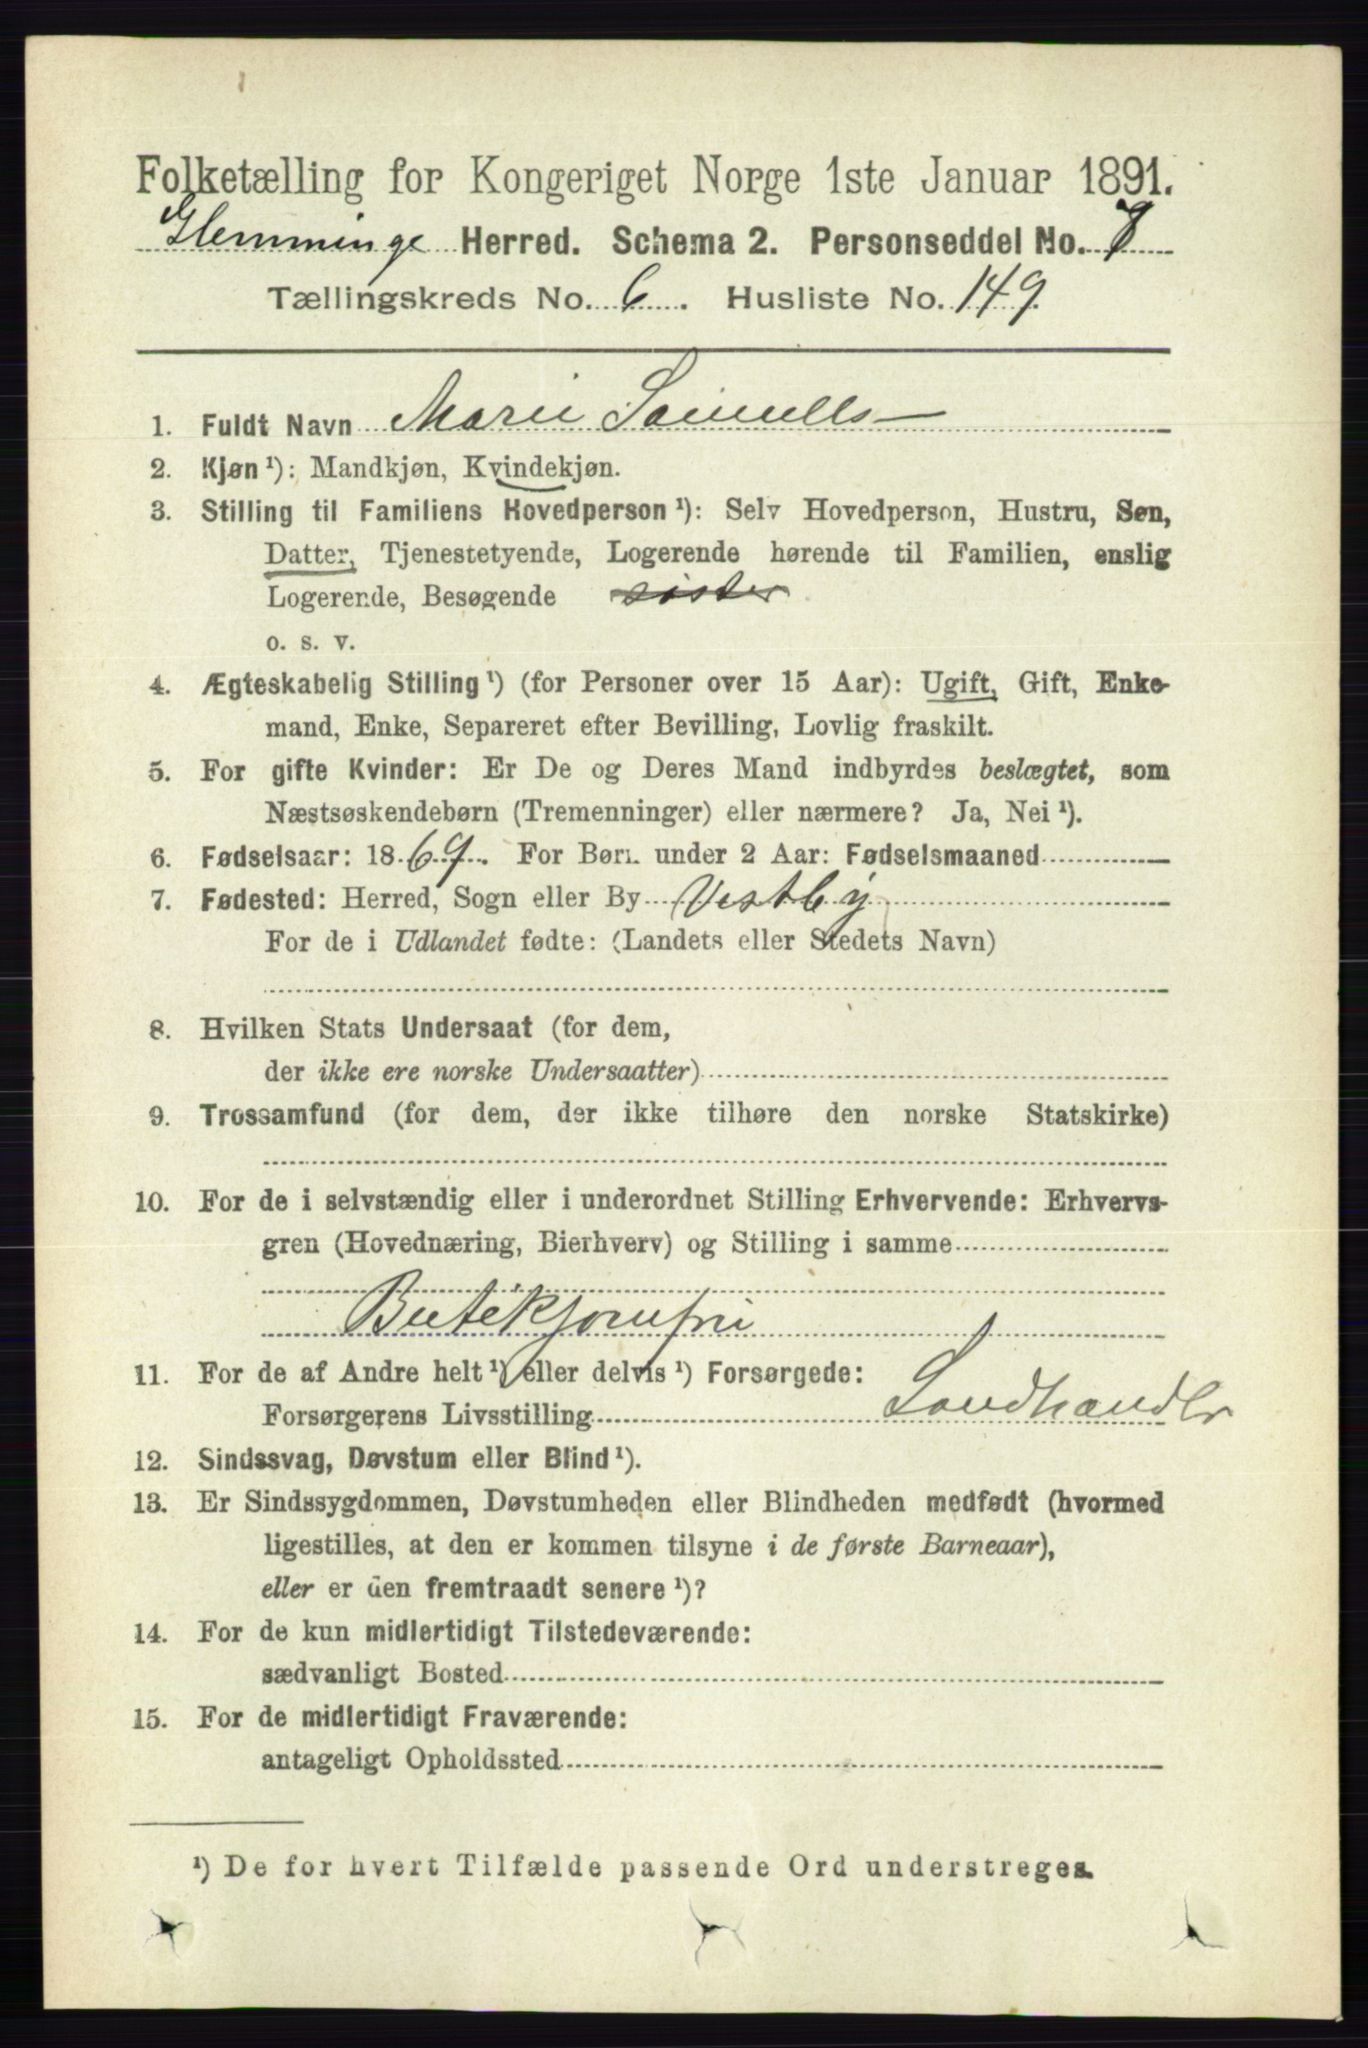 Folketælling for Kongeriget Norge 1ste Januar 1891.
Glemminge Herred. Schema 2. Personseddel No. 8
Tællingskreds No. 6. Husliste No. 149
1. Fuldt Navn Marie Samuels
2. Kjøn ¹): Mandkjøn, Kvindekjøn.
3. Stilling til Familiens Hovedperson ¹): Selv Hovedperson, Hustru, Søn,
Datter, Tjenestetyende, Logerende hørende til Familien, enslig
Logerende, Besøgende søster
o. s. v.
4. Ægteskabelig Stilling ¹) (for Personer over 15 Aar): Ugift, Gift, Enke-
mand, Enke, Separeret efter Bevilling, Lovlig fraskilt.
5. For gifte Kvinder: Er De og Deres Mand indbyrdes beslægtet, som
Næstsøskendebørn (Tremenninger) eller nærmere? Ja, Nei ¹).
6. Fødselsaar: 1869. For Børn under 2 Aar: Fødselsmaaned
7. Fødested: Herred, Sogn eller By Vestby
For de i Udlandet fødte: (Landets eller Stedets Navn)
8. Hvilken Stats Undersaat (for dem,
der ikke ere norske Undersaatter)
9. Trossamfund (for dem, der ikke tilhøre den norske Statskirke)
10. For de i selvstændig eller i underordnet Stilling Erhvervende: Erhvervs-
gren (Hovednæring, Bierhverv) og Stilling i samme
Butikjomfru
11. For de af Andre helt ¹) eller delvis ¹) Forsørgede:
Forsørgerens Livsstilling Landhandler
12. Sindssvag, Døvstum eller Blind ¹).
13. Er Sindssygdommen, Døvstumheden eller Blindheden medfødt (hvormed
ligestilles, at den er kommen tilsyne i de første Barneaar),
eller er den fremtraadt senere ¹)?
14. For de kun midlertidigt Tilstedeværende:
sædvanligt Bosted
15. For de midlertidigt Fraværende:
antageligt Opholdssted
¹) De for hvert Tilfælde passende Ord understreges.